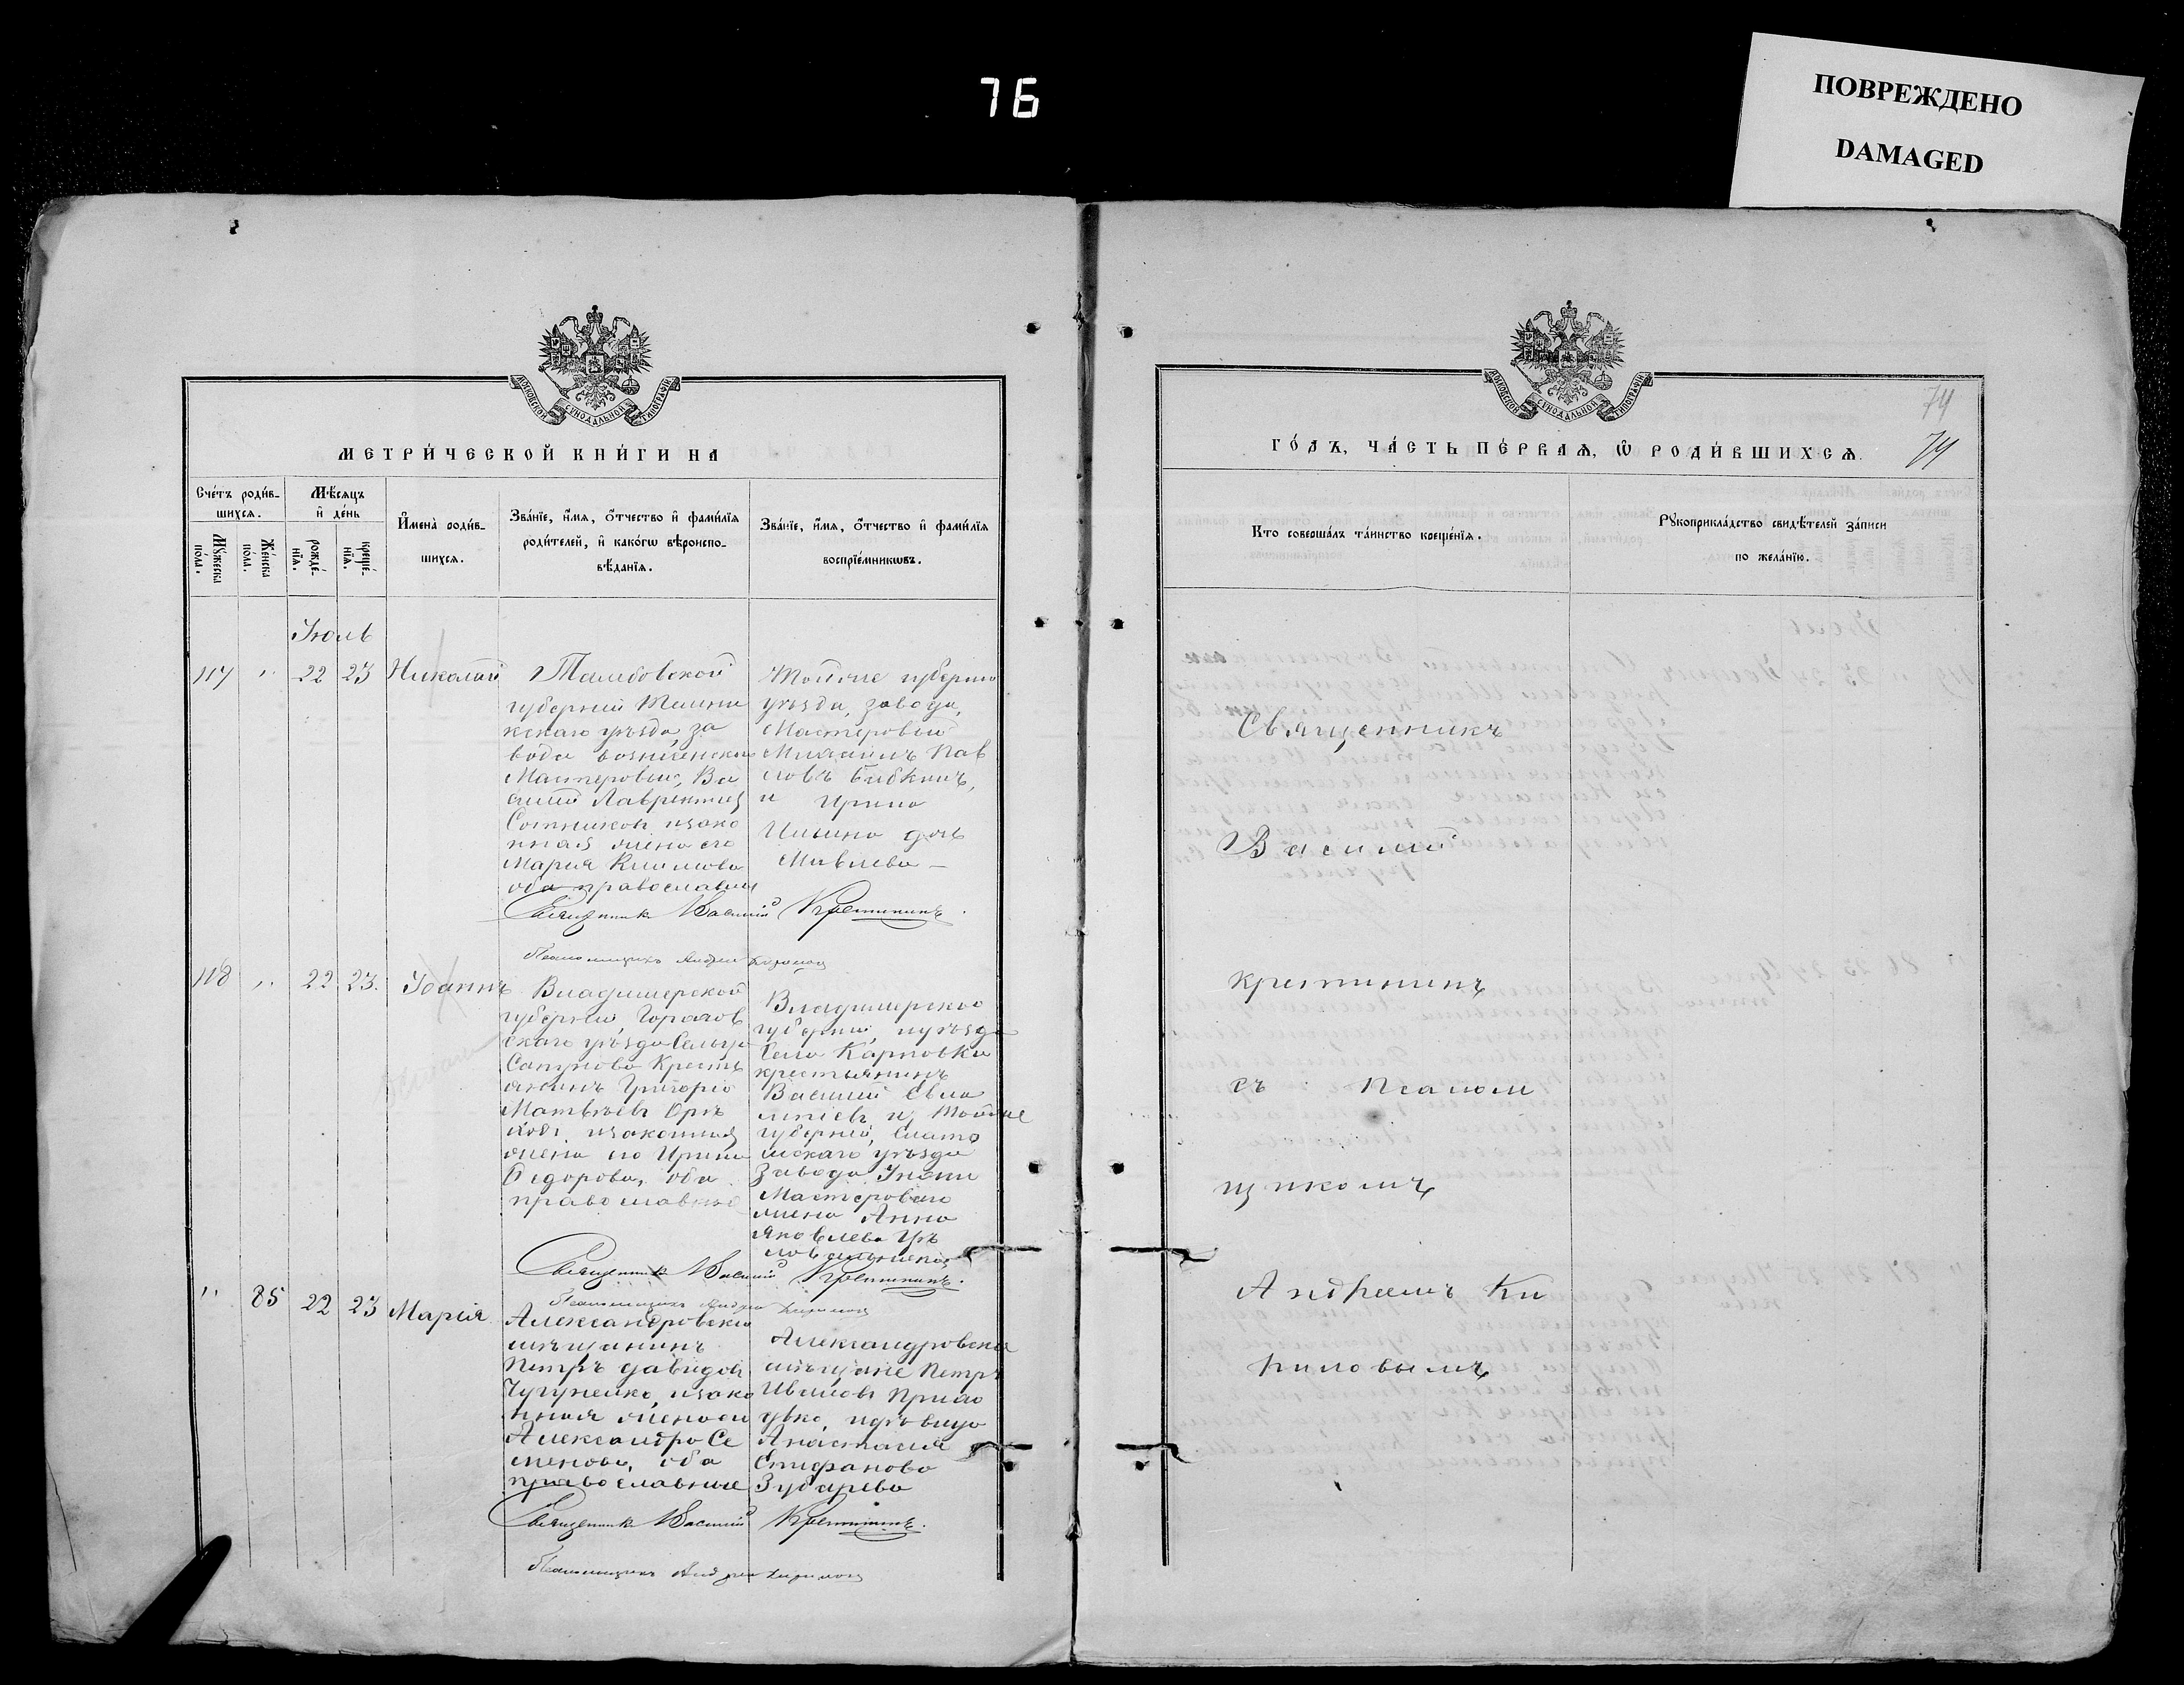 76
ПОВРЕЖДЕНО
DAMAGED
МЕТРИ́ЧЕСКОЙ КНИ́ГИ НА
Сче́тъ роди́в-
шихсѧ.
Мꙋ́жеска
по́ла.
Же́нска
по́ла.
Мѣ́сѧцъ
и҆ де́нь
рожде́-
нїѧ.
креще́-
нїѧ.
И҆мена̀ роди́в-
шихсѧ.
Зва́нїе, и҆́мѧ, ѻ҆́тчество и҆ фами́лїѧ
роди́телей, и҆ како́гѡ вѣроиспо-
вѣ́данїѧ.
Зва́нїе, и҆́мѧ, ѻ҆́тчество и҆ фами́лїѧ
воспрїе́мникѡвъ.
Іюль
117 " 22 23 Николай
Тамбовской
губерніи Темни
кскаго уѣзда, за
вода Вознесенска
Мастеровый, Ва
силій Лаврентіев
Сотников изако
нная жена его
Марія Климова
оба православн
Тойже губерніи
уѣзда, завода,
Мастеровый
Михаилъ Пав
ловъ Бибкинъ,
и Ирина
Ильина дочь
Священникъ Василій Крестининъ.
Псаломщикъ Андрей Кириловъ
118 " 22 23. Іоаннъ
Владимерской
губерніи, Горохов
скаго уѣзда Сельца
Сапуново Кресть
янинъ Григорій
Матвѣевъ
изаконная
жена его Ирина
Ѳедорова, оба
православные
Владимерской
губерніи, иуѣзда
Села Карповки
крестьянинъ
Василій
и Тойже
губерніи, Елато
мскаго уѣзда
Завода
Мастероваго
жена Анна
Яковлева
Священникъ Василій Крестининъ.
Псаломщикъ Андрей Кириловъ
" 85 22 23 Марія
Александровскій
мѣщанинъ
Петръ Давидов
Чугунейко, изако
нная жена его
Александра Се
менова, оба
православные
Александровскіе
мѣщане Петръ
Ивановъ
дѣвица
Анастасия
Стефанова
Зубарева
Священникъ Василій Крестининъ.
Псаломщикъ Андрей Кириловъ
74
ГО́ДЪ, ЧА́СТЬ ПЕ́РВАѦ, Ѽ РОДИ́ВШИХСѦ.
74
Кто соверша́лъ та́инство креще́нїѧ.
Рꙋкоприкла́дство свидѣ́телей за́писи
по жела́нїю.
Священникъ
Василій
Крестининъ
съ Псалом
щикомъ
Андреемъ Ки
риловымъ